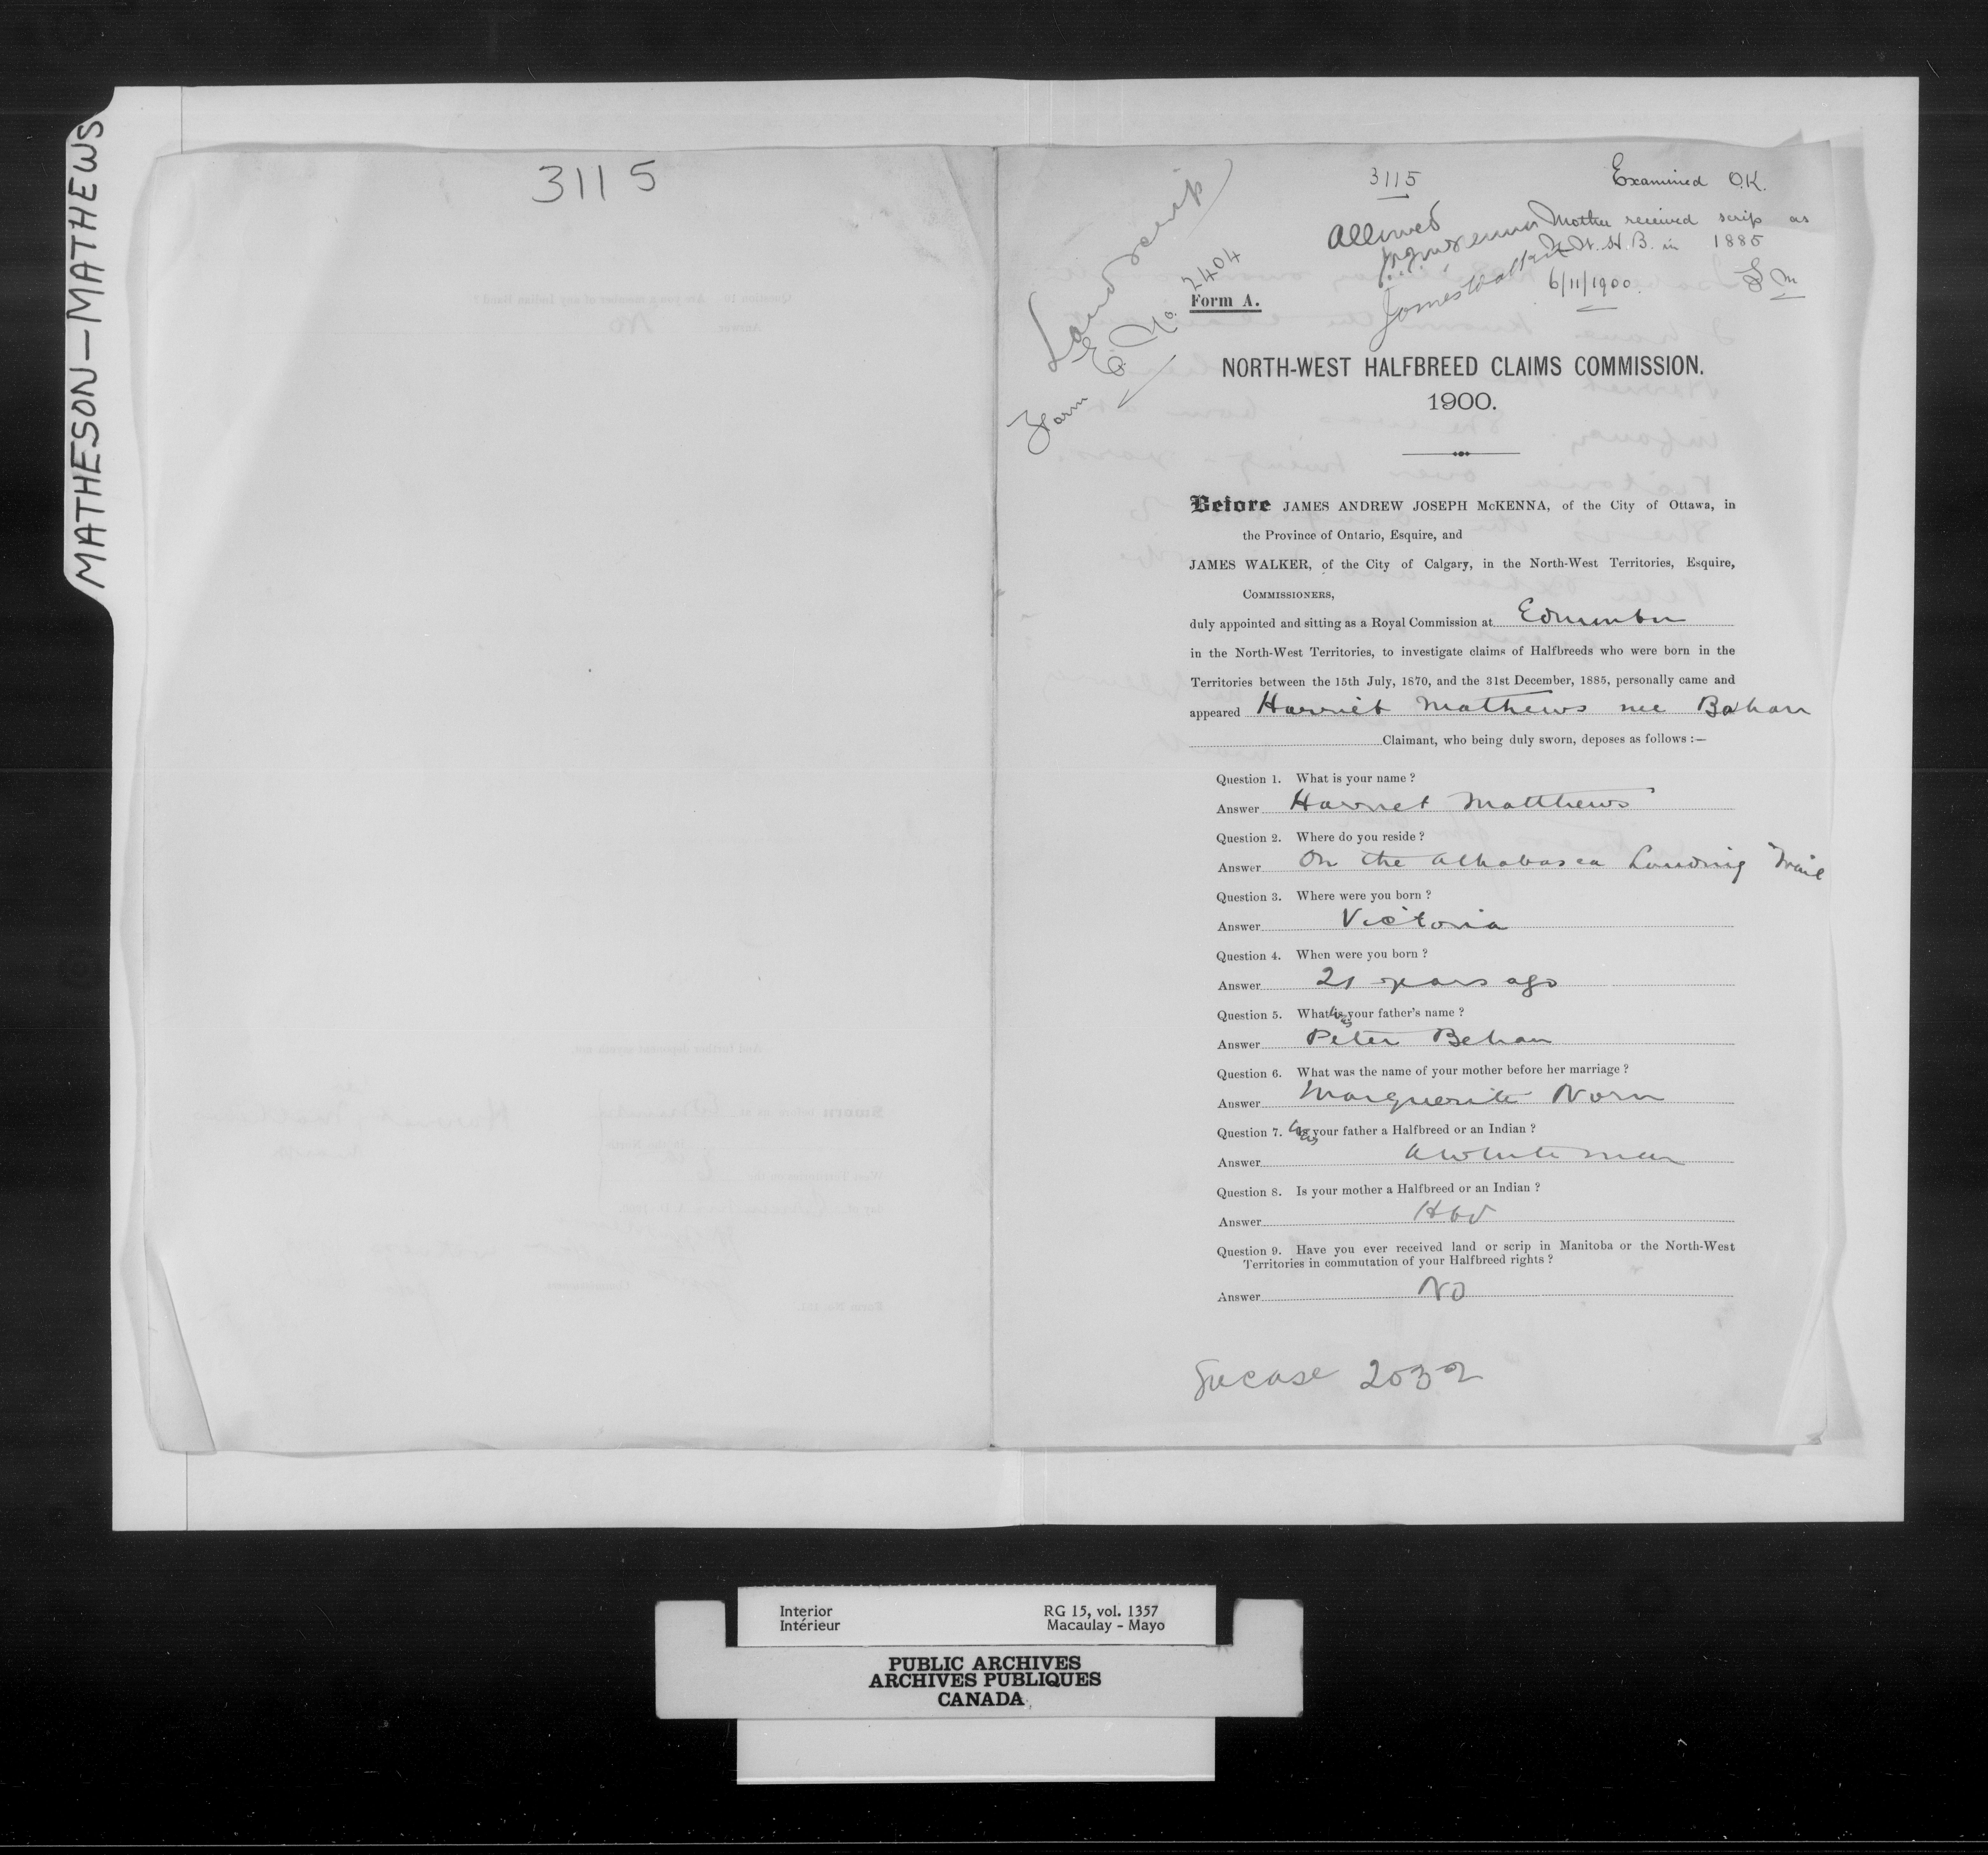 MATHESON—MATHEWS
3115
3115
Examined O.K.
Land scrip
Form E. No. 2404
Allowed
Mother received scrip as
N.W.H.B. in 1885
James Walker
6/11/1900.
Form A.
NORTH-WEST HALFBREED CLAIMS COMMISSION.
1900.
Before JAMES ANDREW JOSEPH McKENNA, of the City of Ottawa, in
the Province of Ontario, Esquire, and
JAMES WALKER, of the City of Calgary, in the North-West Territories, Esquire,
COMMISSIONERS,
duly appointed and sitting as a Royal Commission at Edmonton
in the North-West Territories, to investigate claims of Halfbreeds who were born in the
Territories between the 15th July, 1870, and the 31st December, 1885, personally came and
appeared Harriet Mathews nee Bahan
Claimant, who being duly sworn, deposes as follows :—
Question 1. What is your name ?
Answer Harriet Matthews
Question 2. Where do you reside ?
Answer On the Athabasca Landing Trail
Question 3. Where were you born ?
Answer Victoria
Question 4. When were you born ?
Answer 21 years ago
Question 5. What was your father's name ?
Answer Peter Behan
Question 6. What was the name of your mother before her marriage ?
Answer Marguerite Norn
Question 7. Was your father a Halfbreed or an Indian ?
Answer A white man
Question 8. Is your mother a Halfbreed or an Indian ?
Answer Hbd
Question 9. Have you ever received land or scrip in Manitoba or the North-West
Territories in commutation of your Halfbreed rights ?
Answer No
See case 2032
Interior RG 15, vol. 1357
Intérieur Macaulay - Mayo
PUBLIC ARCHIVES
ARCHIVES PUBLIQUES
CANADA